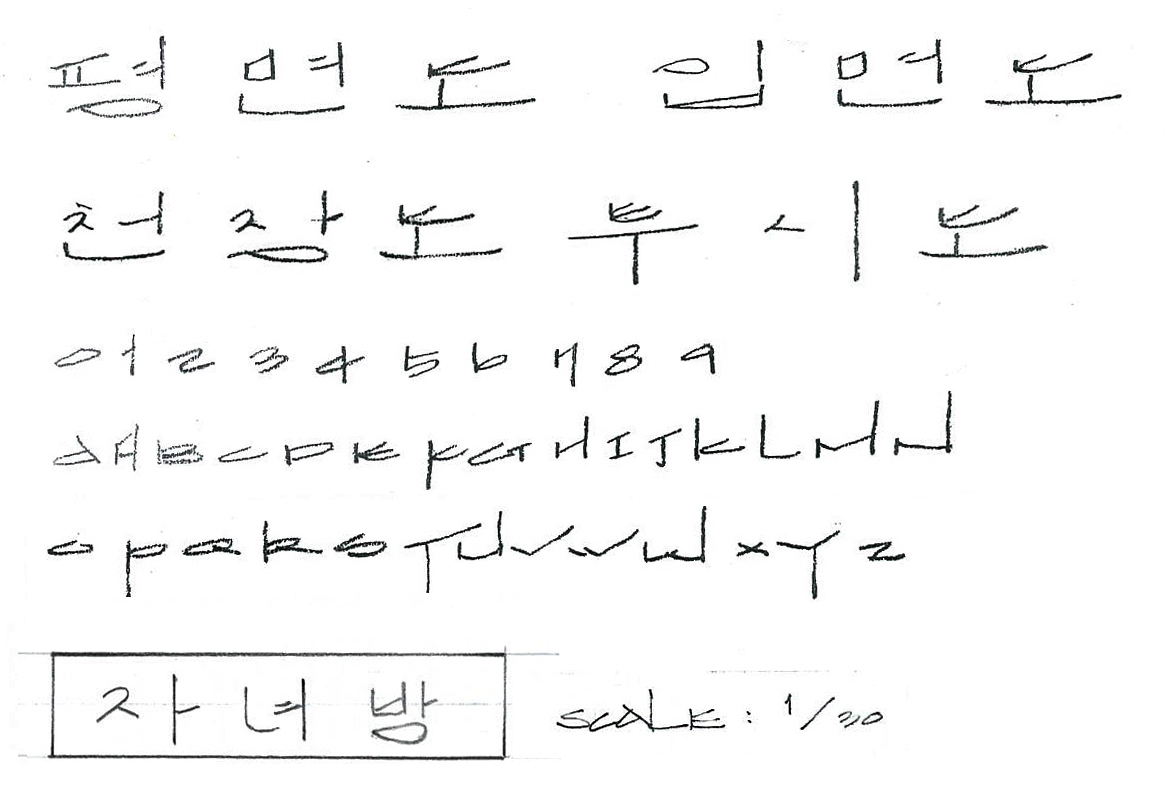 평 면 도 입 면 도
천 장 도 투 시 도
0 1 2 3 4 5 6 7 8 9
A A B C D E F G H I J K L M N
O P Q R S T U V W W X Y Z
자 녀 방 SCALE : 1/30